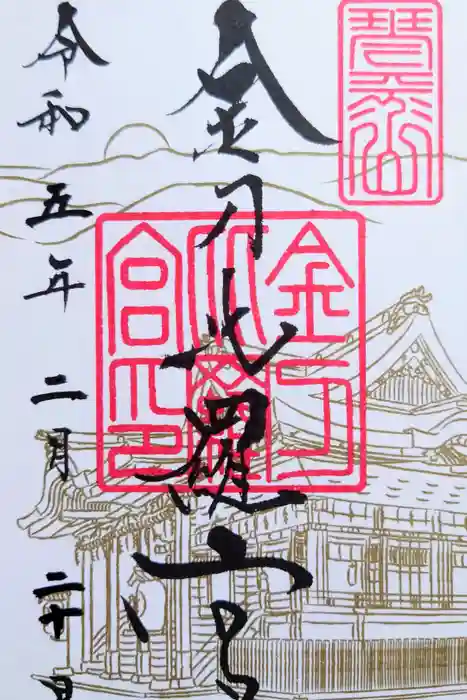 金刀比羅宮
金刀
比羅
宮印
令和五年二月二十日